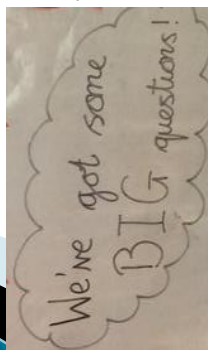 We've got some
BIG questions!